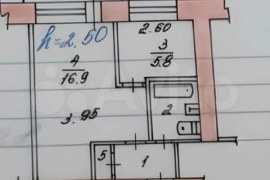 h=2.50
2.60
4
16.9
3
5.8
3.95
2
5
1
Avito